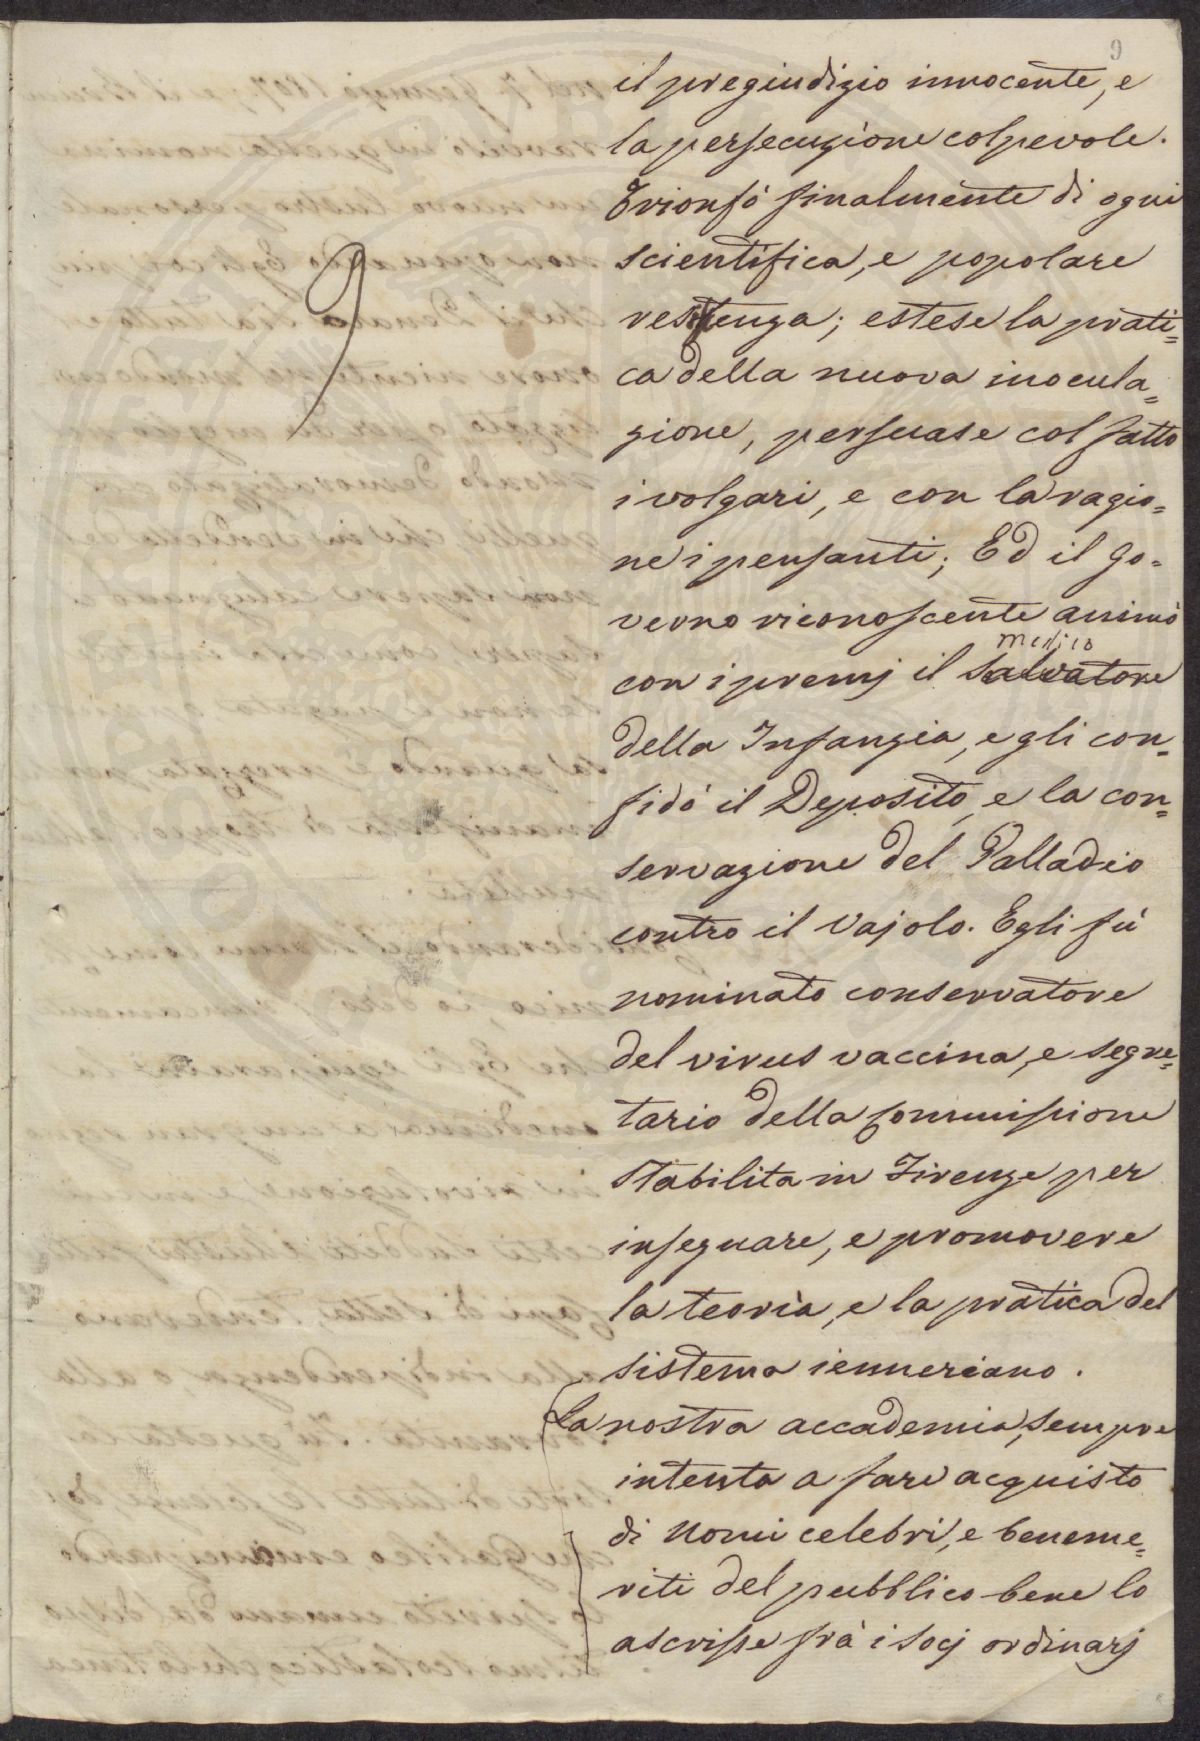 9
il pregiudizio innocente, e
la persecuzione colpevole.
Trionfò finalmente di ogni
scientifica, e popolare
resistenza; estese la prati=
ca della nuova inocula=
zione, persuase col fatto
i volgari, e con la ragio=
ne i pensanti; Ed il Go=
verno riconoscente animò
medico
con i premj il salvatore
della Infanzia, e gli con=
fidò il Deposito, e la con=
servazione del Palladio
contro il Vajolo. Egli fù
nominato conservatore
del virus vaccina, e segre=
tario della Commissione
stabilita in Firenze per
insegnare, e promovere
la teoria, e la pratica del
sistema ienneriano.
La nostra accademia, sempre
intenta a fare acquisto
di Nomi celebri, e beneme=
riti del pubblico bene lo
ascrisse frà i socj ordinarj